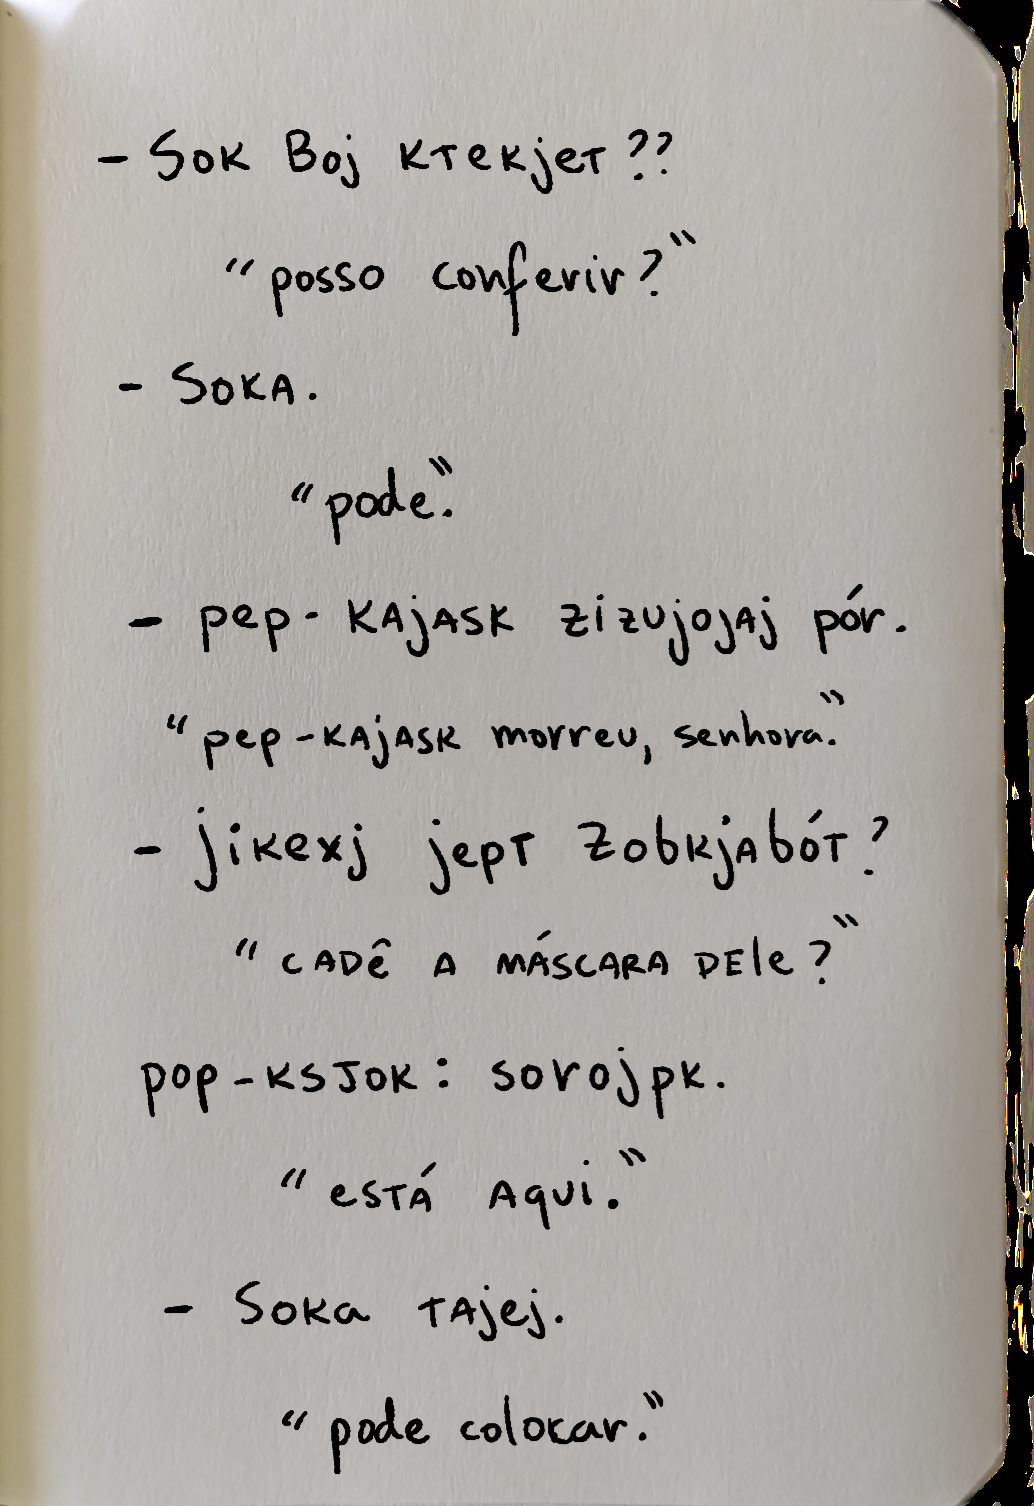 - Sok Boj ktekjet??
"posso conferir?"
- Soka.
"pode."
- pep-kajask zizujojaj pór.
"pep-kajask morreu, senhora."
- jikexj jept zobkjabót?
"CADÊ A MÁSCARA DELE?"
pop-ksjok: sorojpk.
"está aqui."
- Soka tajej.
"pode colocar."